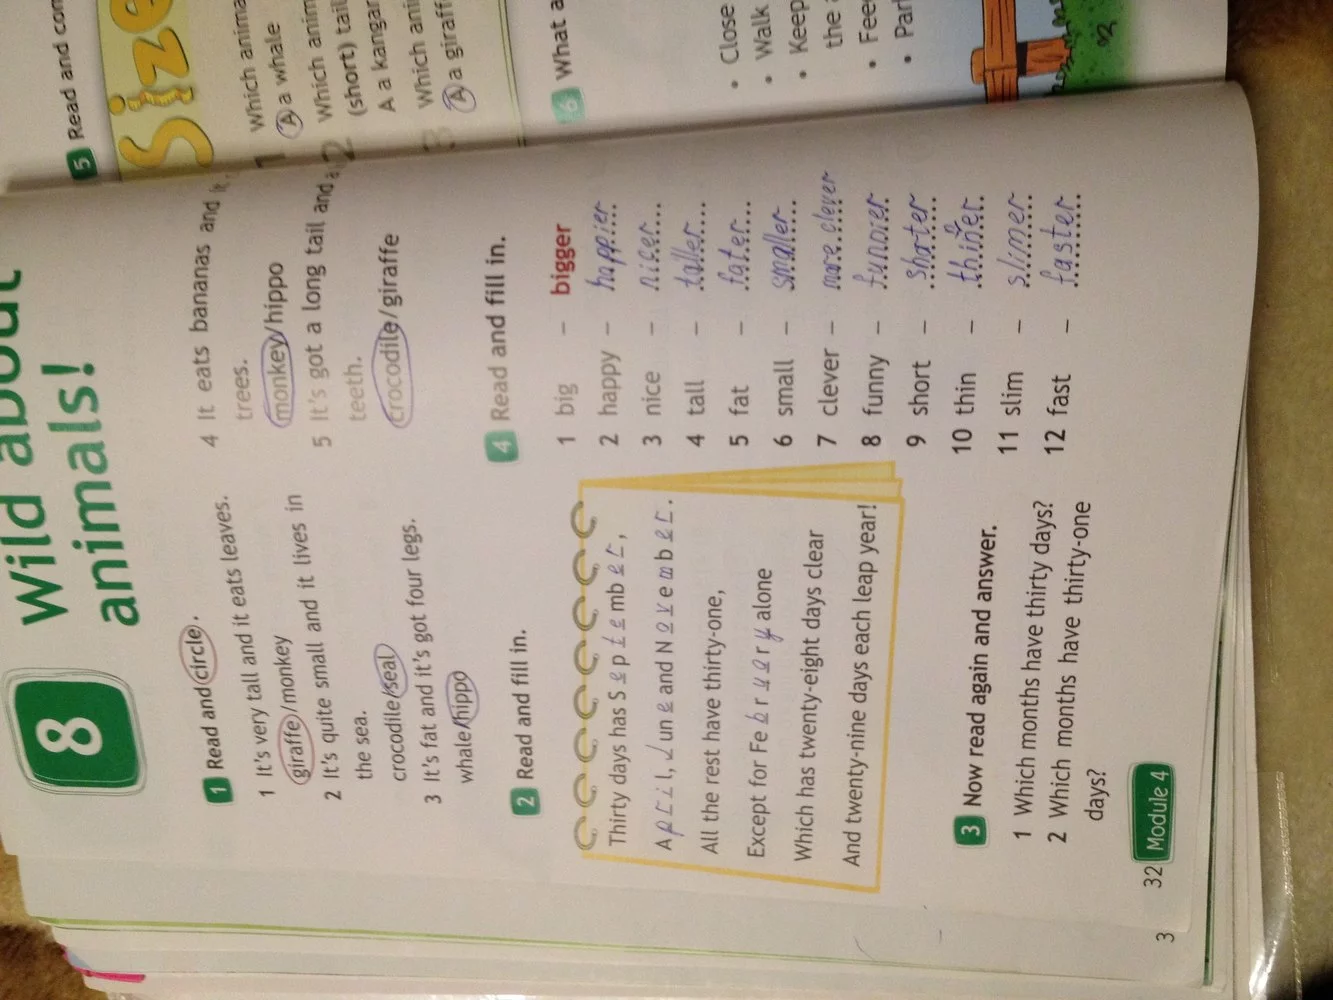 8 Wild about
animals!
1 Read and circle.
1 It's very tall and it eats leaves.
giraffe/monkey
2 It's quite small and it lives in
the sea.
crocodile/seal
3 It's fat and it's got four legs.
whale/hippo
4 It eats bananas and
trees.
monkey/hippo
5 It's got a long tail and
teeth.
crocodile/giraffe
2 Read and fill in.
Thirty days has September,
April, June and November.
All the rest have thirty-one,
Except for February alone
Which has twenty-eight days clear
And twenty-nine days each leap year!
3 Now read again and answer.
1 Which months have thirty days?
2 Which months have thirty-one
days?
4 Read and fill in.
1 big – bigger
2 happy – happier
3 nice – nicer
4 tall – taller
5 fat – fater
6 small – smaller
7 clever – more clever
8 funny – funnier
9 short – shorter
10 thin – thiner
11 slim – slimer
12 fast – faster
32 Module 4
3
5 Read and com
Size
1 Which anima
A a whale
2 Which anim
(short) tail
A a kangar
3 Which ani
A a giraff
6 What a
• Close
• Walk
• Keep
the
• Fee
• Par